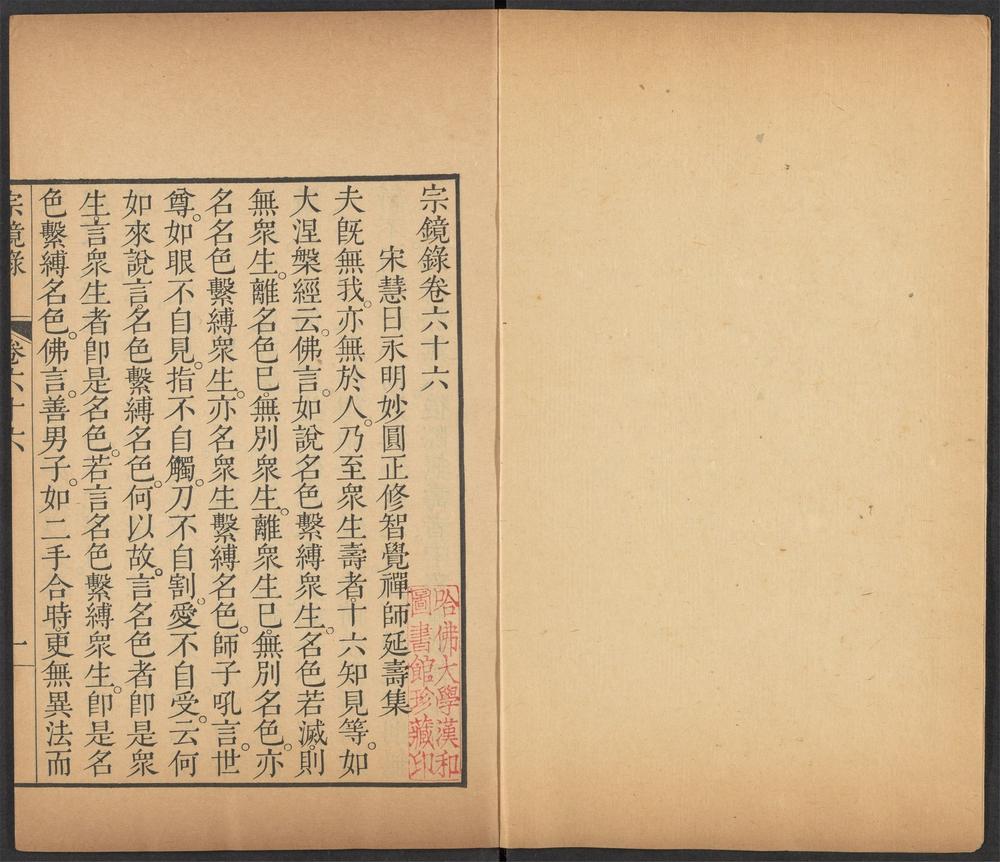 宗鏡錄卷六十六
宋慧日永明妙圓正修智覺禪師延壽集
夫既無我。亦無於人。乃至眾生壽者。十六知見等。如
大涅槃經云。佛言。如說名色繫縛眾生。名色若滅。則
無眾生。離名色已。無別眾生。離眾生已。無別名色。亦
名名色繫縛眾生。亦名眾生繫縛名色。師子吼言。世
尊。如眼不自見。指不自觸。刀不自割。愛不自受。云何
如來說言。名色繫縛名色。何以故。言名色者。即是眾
生。言眾生者。即是名色。若言名色繫縛眾生。即是名
色繫縛名色。佛言。善男子。如二手合時。更無異法而
宗鏡錄 卷六十六 一
哈佛大學漢和
圖書館珍藏印